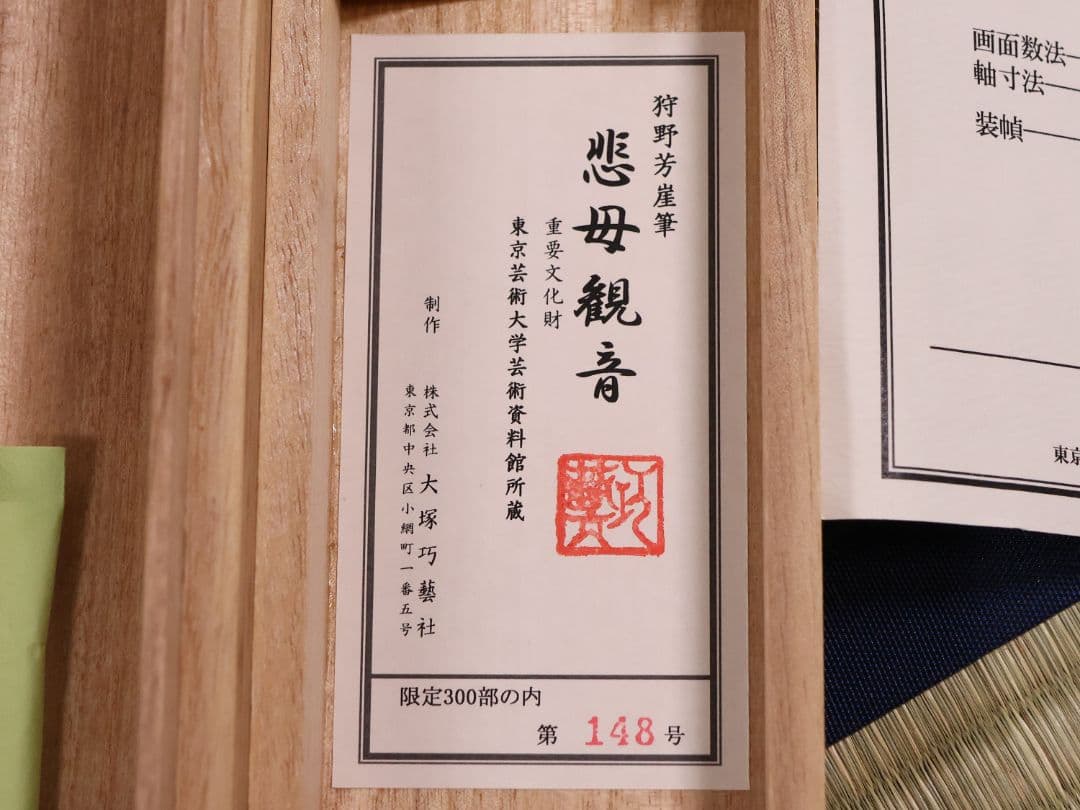 狩野芳崖筆
悲母観音
重要文化財
東京芸術大学芸術資料館所蔵
制作
株式会社 大塚巧藝社
東京都中央区小網町一番五号
限定300部の内
第 148 号
画面数法
軸寸法
装幀
東京